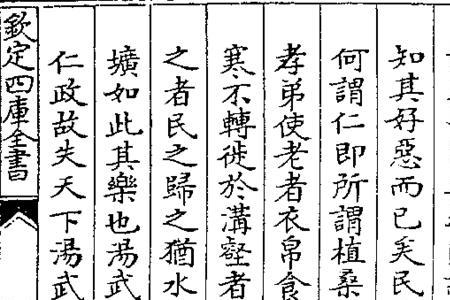 知其好惡而已矣民
何謂仁即所謂植桑
孝弟使老者衣帛食
寒不轉徙於溝壑者
之者民之歸之猶水
壙如此其樂也湯武
仁政故失天下湯武
欽定四庫全書